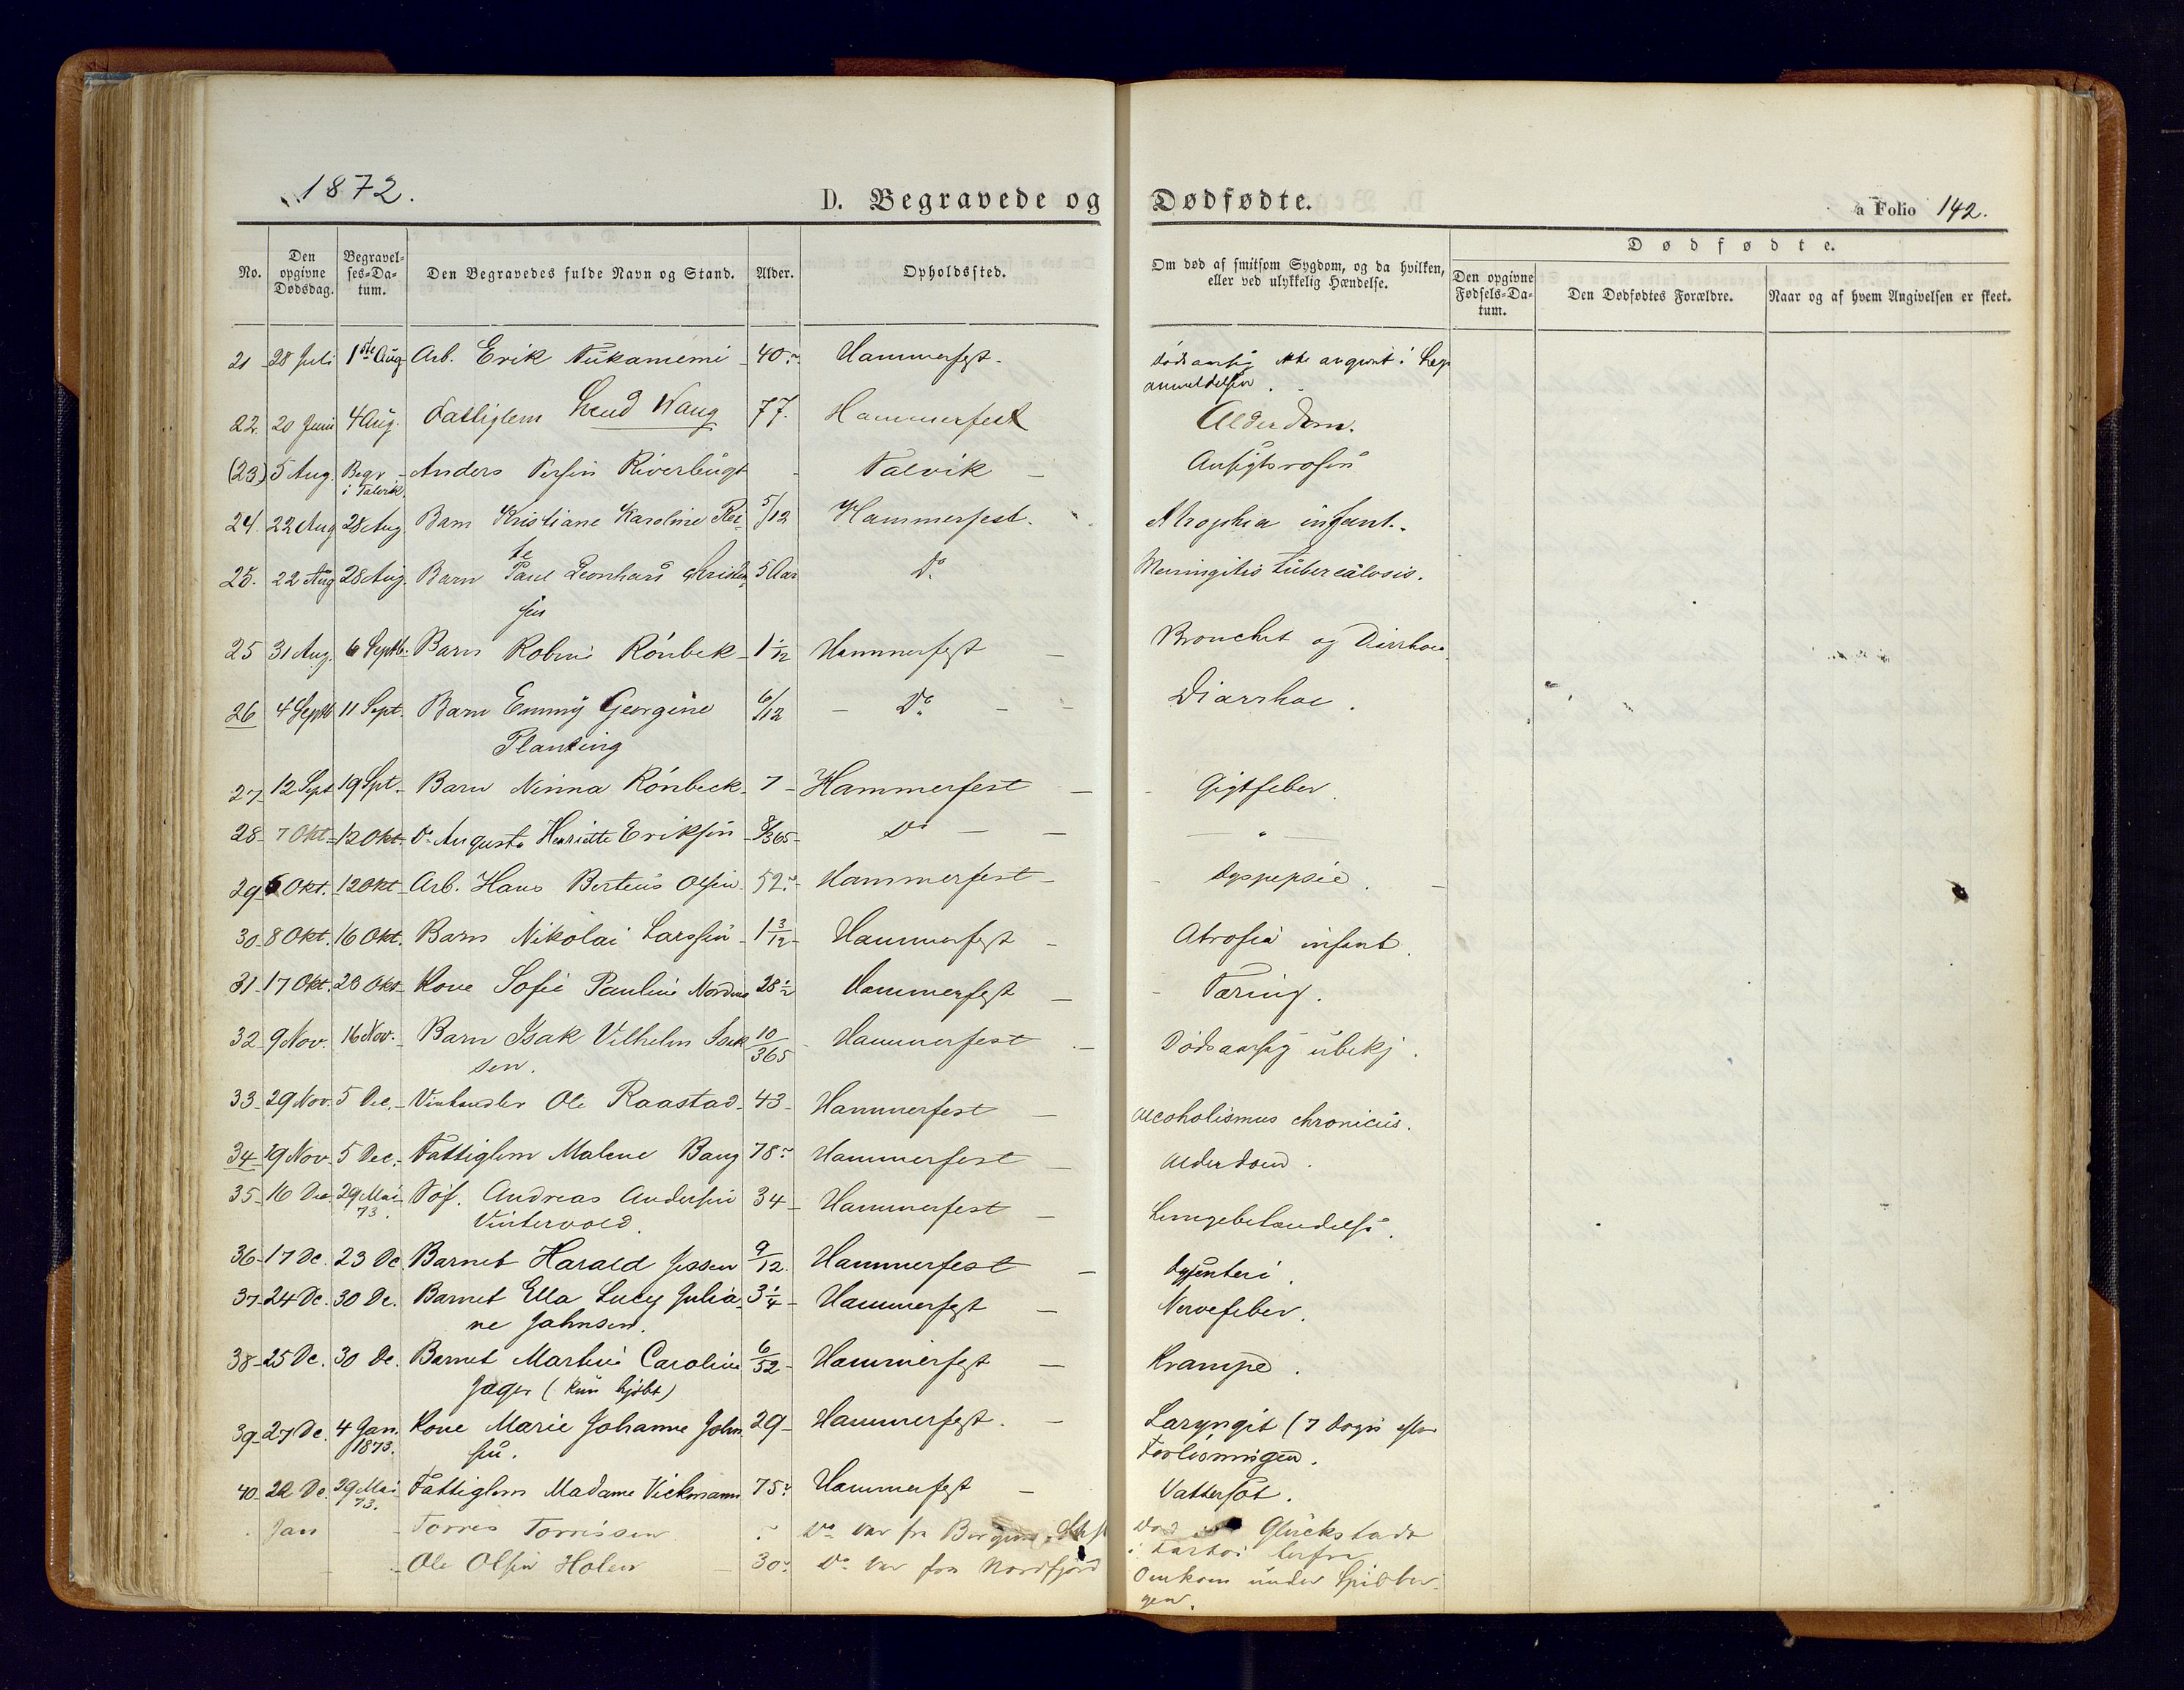 1872.
D. Begravede og Dødfødte.
a Folio 142.
No.
Den opgivne Dødsdag.
Begravelses-Datum.
Den Begravedes fulde Navn og Stand.
Alder.
Opholdssted.
Om død af smitsom Sygdom, og da hvilken, eller ved ulykkelig Hændelse.
Dødfødte.
Den opgivne Fødsels-Datum.
Den Dødfødtes Forældre.
Naar og af hvem Angivelsen er skeet.
21 28 Juli 1ste Aug Arb. Erik 40 Hammerfest. Dødsaarsag ikke angivet i
anmeldelsen.
22. 20 Juni 4 Aug. Fattiglem Wang 77. Hammerfest Alderdom.
(23) 5 Aug. Begr. Anders Persen Riverbugt Talvik Ansigtsrosen
i Talvik.
24. 22 Aug 28 Aug Barn Kristiane Karoline Rei- 5/12 Hammerfest. Atrophia infant.
te
25. 22 Aug 28 Aug. Barn Paul Leonhard Kristian 5 Aar Do Meningitis tuberculosis.
sen
25 31 Aug. 6 Septb. Barn Rönbek 1 1/12 Hammerfest Bronchit og Diarrhoe
26 4 Septb 11 Sept. Barn Emmy Georgine 6/12 Do Diarrhoe.
Planting
27 12 Sept 19 Spt. Barn Ninna Rönbeck 7 Hammerfest Gigtfeber.
28 7 Okt. 12 Okt. Do Augusta Henriette Eriksen 8/365 Do "
29 6 Okt. 12 Okt Arb. Hans Berteus Olsen 52 Hammerfest Dyspepsie.
30 8 Okt. 16 Okt. Barn Nikolai Larssen 1 3/12 Hammerfest Atrofia infant.
31 17 Okt. 23 Okt Kone Sofie Pauline 28 1/2 Hammerfest Tæring.
32 9 Nov. 16 Nov. Barn Isak Vilhelm Isak 10/365 Hammerfest Dødsaarsag ubekj.
sen.
33 29 Nov. 5 Dec. Vinhandler Ole Raastad 43 Hammerfest Alcoholismus chronicus.
34 19 Nov 5 Dec. Fattiglem Malene Bang 78 Hammerfest Alderdom.
35 16 Dec 29 Mai 73. Andreas Andersen 34 Hammerfest Lungebetændelse.
Vintervold.
36 17 De. 23 De Barnet Harald Jessen 9/12. Hammerfest Dysenteri.
37 24 De. 30 De. Barnet Ella Lucy Julia 3 1/4 Hammerfest Nervefeber.
ne Jahnsen.
38 25 De. 30 De. Barnet Martine Caroline 6/52 Hammerfest Krampe.
Jæger (kun hjdbt)
39 27 De. 4 Jan. 1873. Kone Marie Johanne John 29 Hammerfest. Laryngit (7 Dage efter
sen. Forløsningen.
40 22 De. 29 Mai 73. Fattiglem Madame Vickmann 75 Hammerfest Vattersot.
Jan Torres Torrissen Do var fra Bergens Glückstadt
i herfra
Ole Olsen Holen 30 Do var fra Nordfjord Omkom under Spidsber
gen.